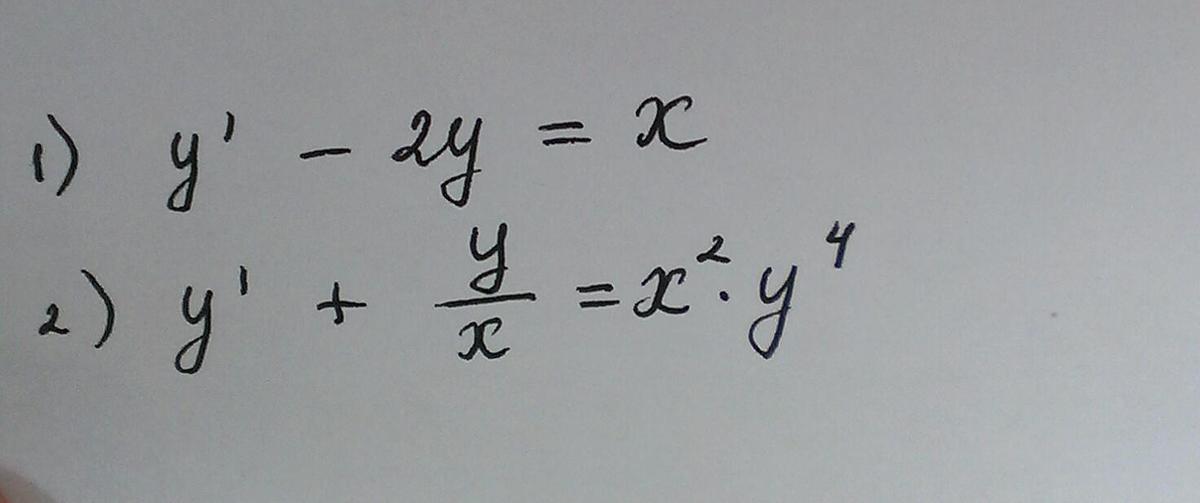 1) y' - 2y = x
2) y' + y/x = x² · y⁴